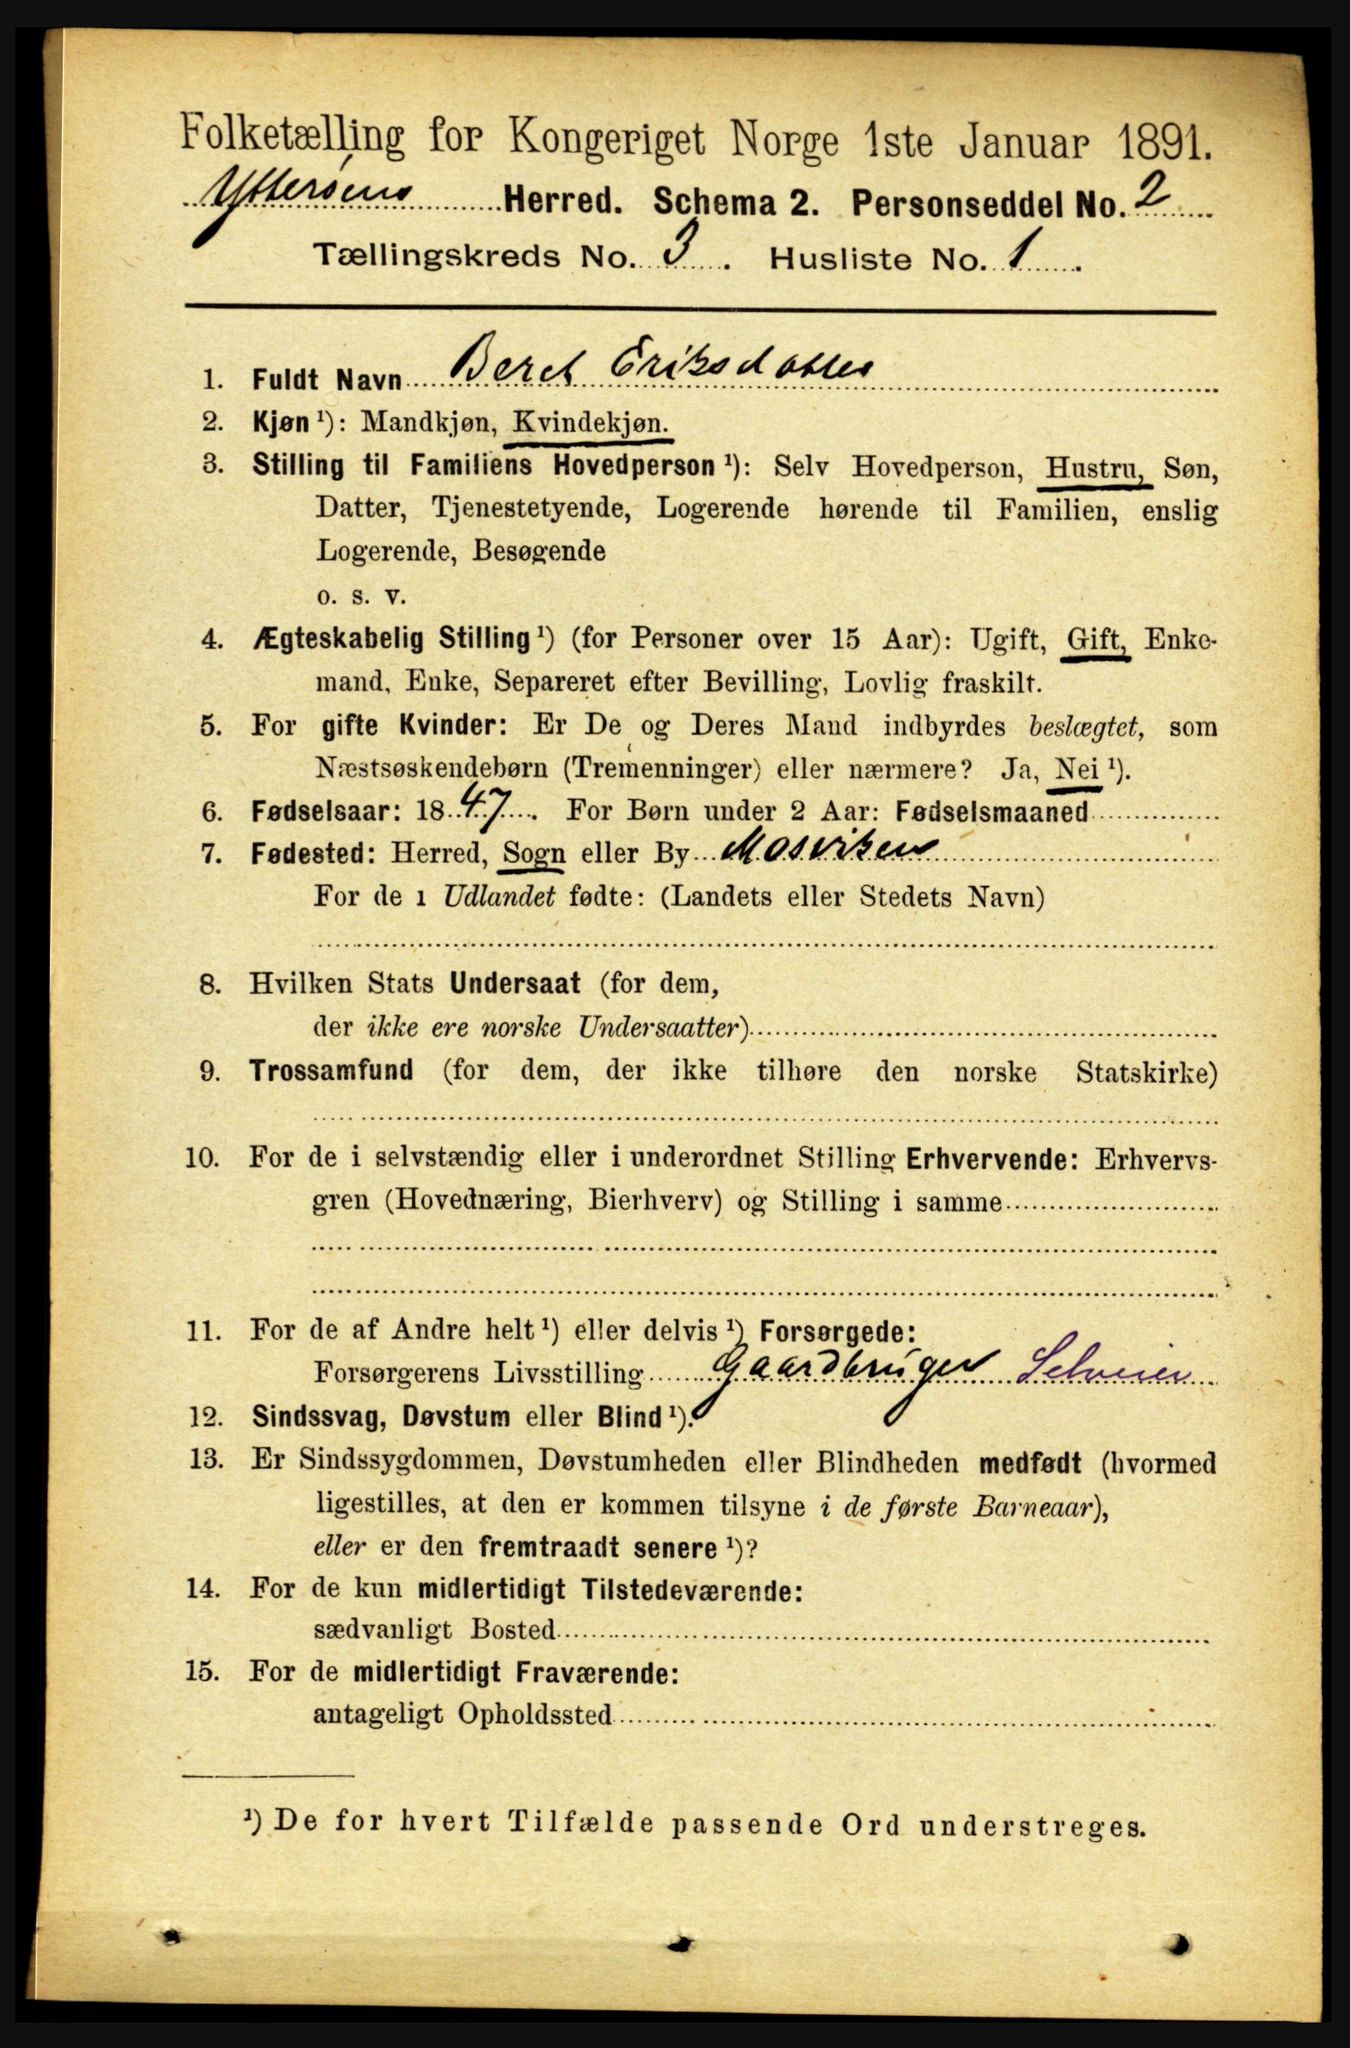 Folketælling for Kongeriget Norge 1ste Januar 1891.
Ytterøens Herred. Schema 2. Personseddel No. 2
Tællingskreds No. 3. Husliste No. 1.
1. Fuldt Navn Beret Eriksdatter
2. Kjøn ¹): Mandkjøn, Kvindekjøn.
3. Stilling til Familiens Hovedperson ¹): Selv Hovedperson, Hustru, Søn,
Datter, Tjenestetyende, Logerende hørende til Familien, enslig
Logerende, Besøgende
o. s. v.
4. Ægteskabelig Stilling ¹) (for Personer over 15 Aar): Ugift, Gift, Enke-
mand, Enke, Separeret efter Bevilling, Lovlig fraskilt.
5. For gifte Kvinder: Er De og Deres Mand indbyrdes beslægtet, som
Næstsøskendebørn (Tremenninger) eller nærmere? Ja, Nei ¹).
6. Fødselsaar: 1847. For Børn under 2 Aar: Fødselsmaaned
7. Fødested: Herred, Sogn eller By Mosviken
For de i Udlandet fødte: (Landets eller Stedets Navn)
8. Hvilken Stats Undersaat (for dem,
der ikke ere norske Undersaatter)
9. Trossamfund (for dem, der ikke tilhøre den norske Statskirke)
10. For de i selvstændig eller i underordnet Stilling Erhvervende: Erhvervs-
gren (Hovednæring, Bierhverv) og Stilling i samme
11. For de af Andre helt ¹) eller delvis ¹) Forsørgede:
Forsørgerens Livsstilling Gaardbruger Selveier
12. Sindssvag, Døvstum eller Blind ¹).
13. Er Sindssygdommen, Døvstumheden eller Blindheden medfødt (hvormed
ligestilles, at den er kommen tilsyne i de første Barneaar),
eller er den fremtraadt senere ¹)?
14. For de kun midlertidigt Tilstedeværende:
sædvanligt Bosted
15. For de midlertidigt Fraværende:
antageligt Opholdssted
¹) De for hvert Tilfælde passende Ord understreges.